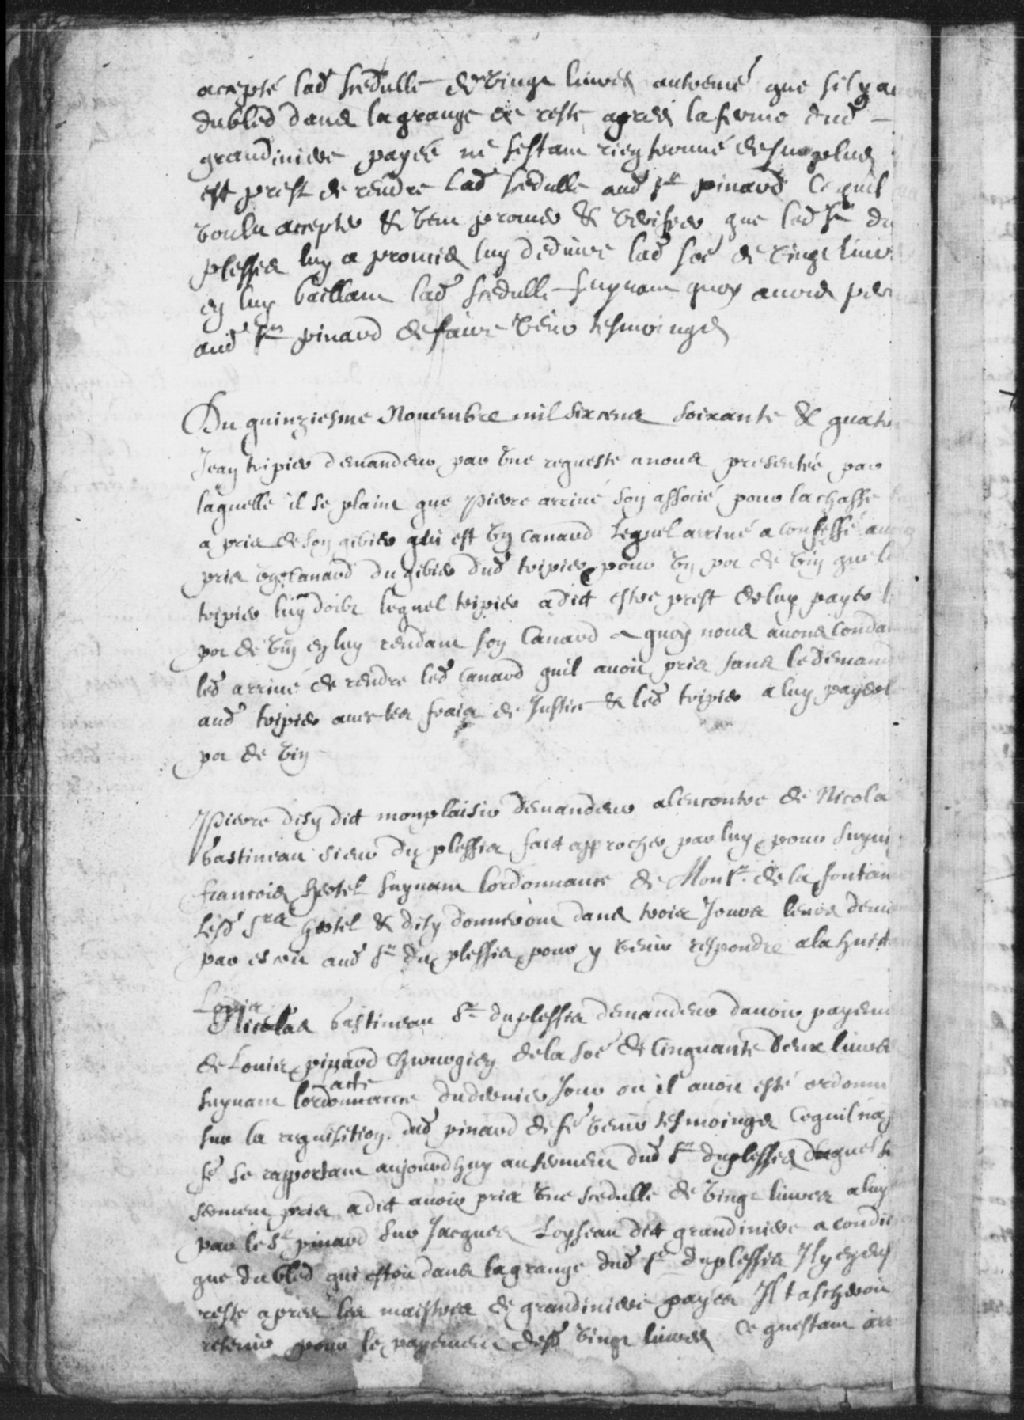 accepté lad scedulle de vingt livres autremt que sil y a
du bled dans la grange de reste apres la ferme dud
grandiniere payée ne sestant rien trouvé de surplus
est prest de rendre lad scedulle aud sr pinard ce quil
voulu accepter & veu prouver & veriffier que led sr du
plessis luy a promis luy deduire lad soe de vingt livr
en luy baillant lad scedulle suyvant quoy avons per
aud sr pinard de faire venir tesmoings
Du quinziesme Novembre mil six cens soixante & quatre
Jean tripier demandeur par une requeste a nous presentée par
laquelle il se plaint que Pierre arrivé son associé pour la chasse
a pris de son gibier qui est un canard lequel arrivé a confessé avoir
pris ung canard du gibier dud tripier pour un pot de vin que le
tripier luy doibt lequel tripier a dit estre prest de luy payer le
pot de vin en luy rendant son Canard a quoy nous avons condam
led arrivé de rendre led canard quil avoit pris sans le demand
aud tripier avec les frais de Justice & led tripier a luy payer le
pot de vin
Pierre disy dit monplaisir demandeur a lencontre de Nicolas
bastineau sieur du plessis fait approcher par luy pour suyv
francois hertel suyvant lordonnance de Monsr de la fontain
lesd srs hertel & disy donneront dans trois Jours leurs dem
par escrit aud sr du plessis pour y venir respondre a la huit
Louis
Nicolas bastineau Sr duplessis demandeur davoir payement
de Louis pinard Chirurgien de la soe de Cinquante deux livres
suyvant lordonnance acte du dernier Jour ou il avoit esté ordonné
sur la requisition dud pinard de fe venir tesmoings ce quil na
fe se rapportant aujourdhuy au serment dud sr duplessis duquel le
serment pris a dit avoir pris une scedulle de vingt livres a luy
par le Sr pinard sur Jacques Loyseau dit grandiniere a condit
que du bled qui estoit dans la grange dud sr duplessis Il y en
reste apres les maistres de grandiniere payés Il tascheroit
retenir pour le payement desd vingt livres ce questant arr